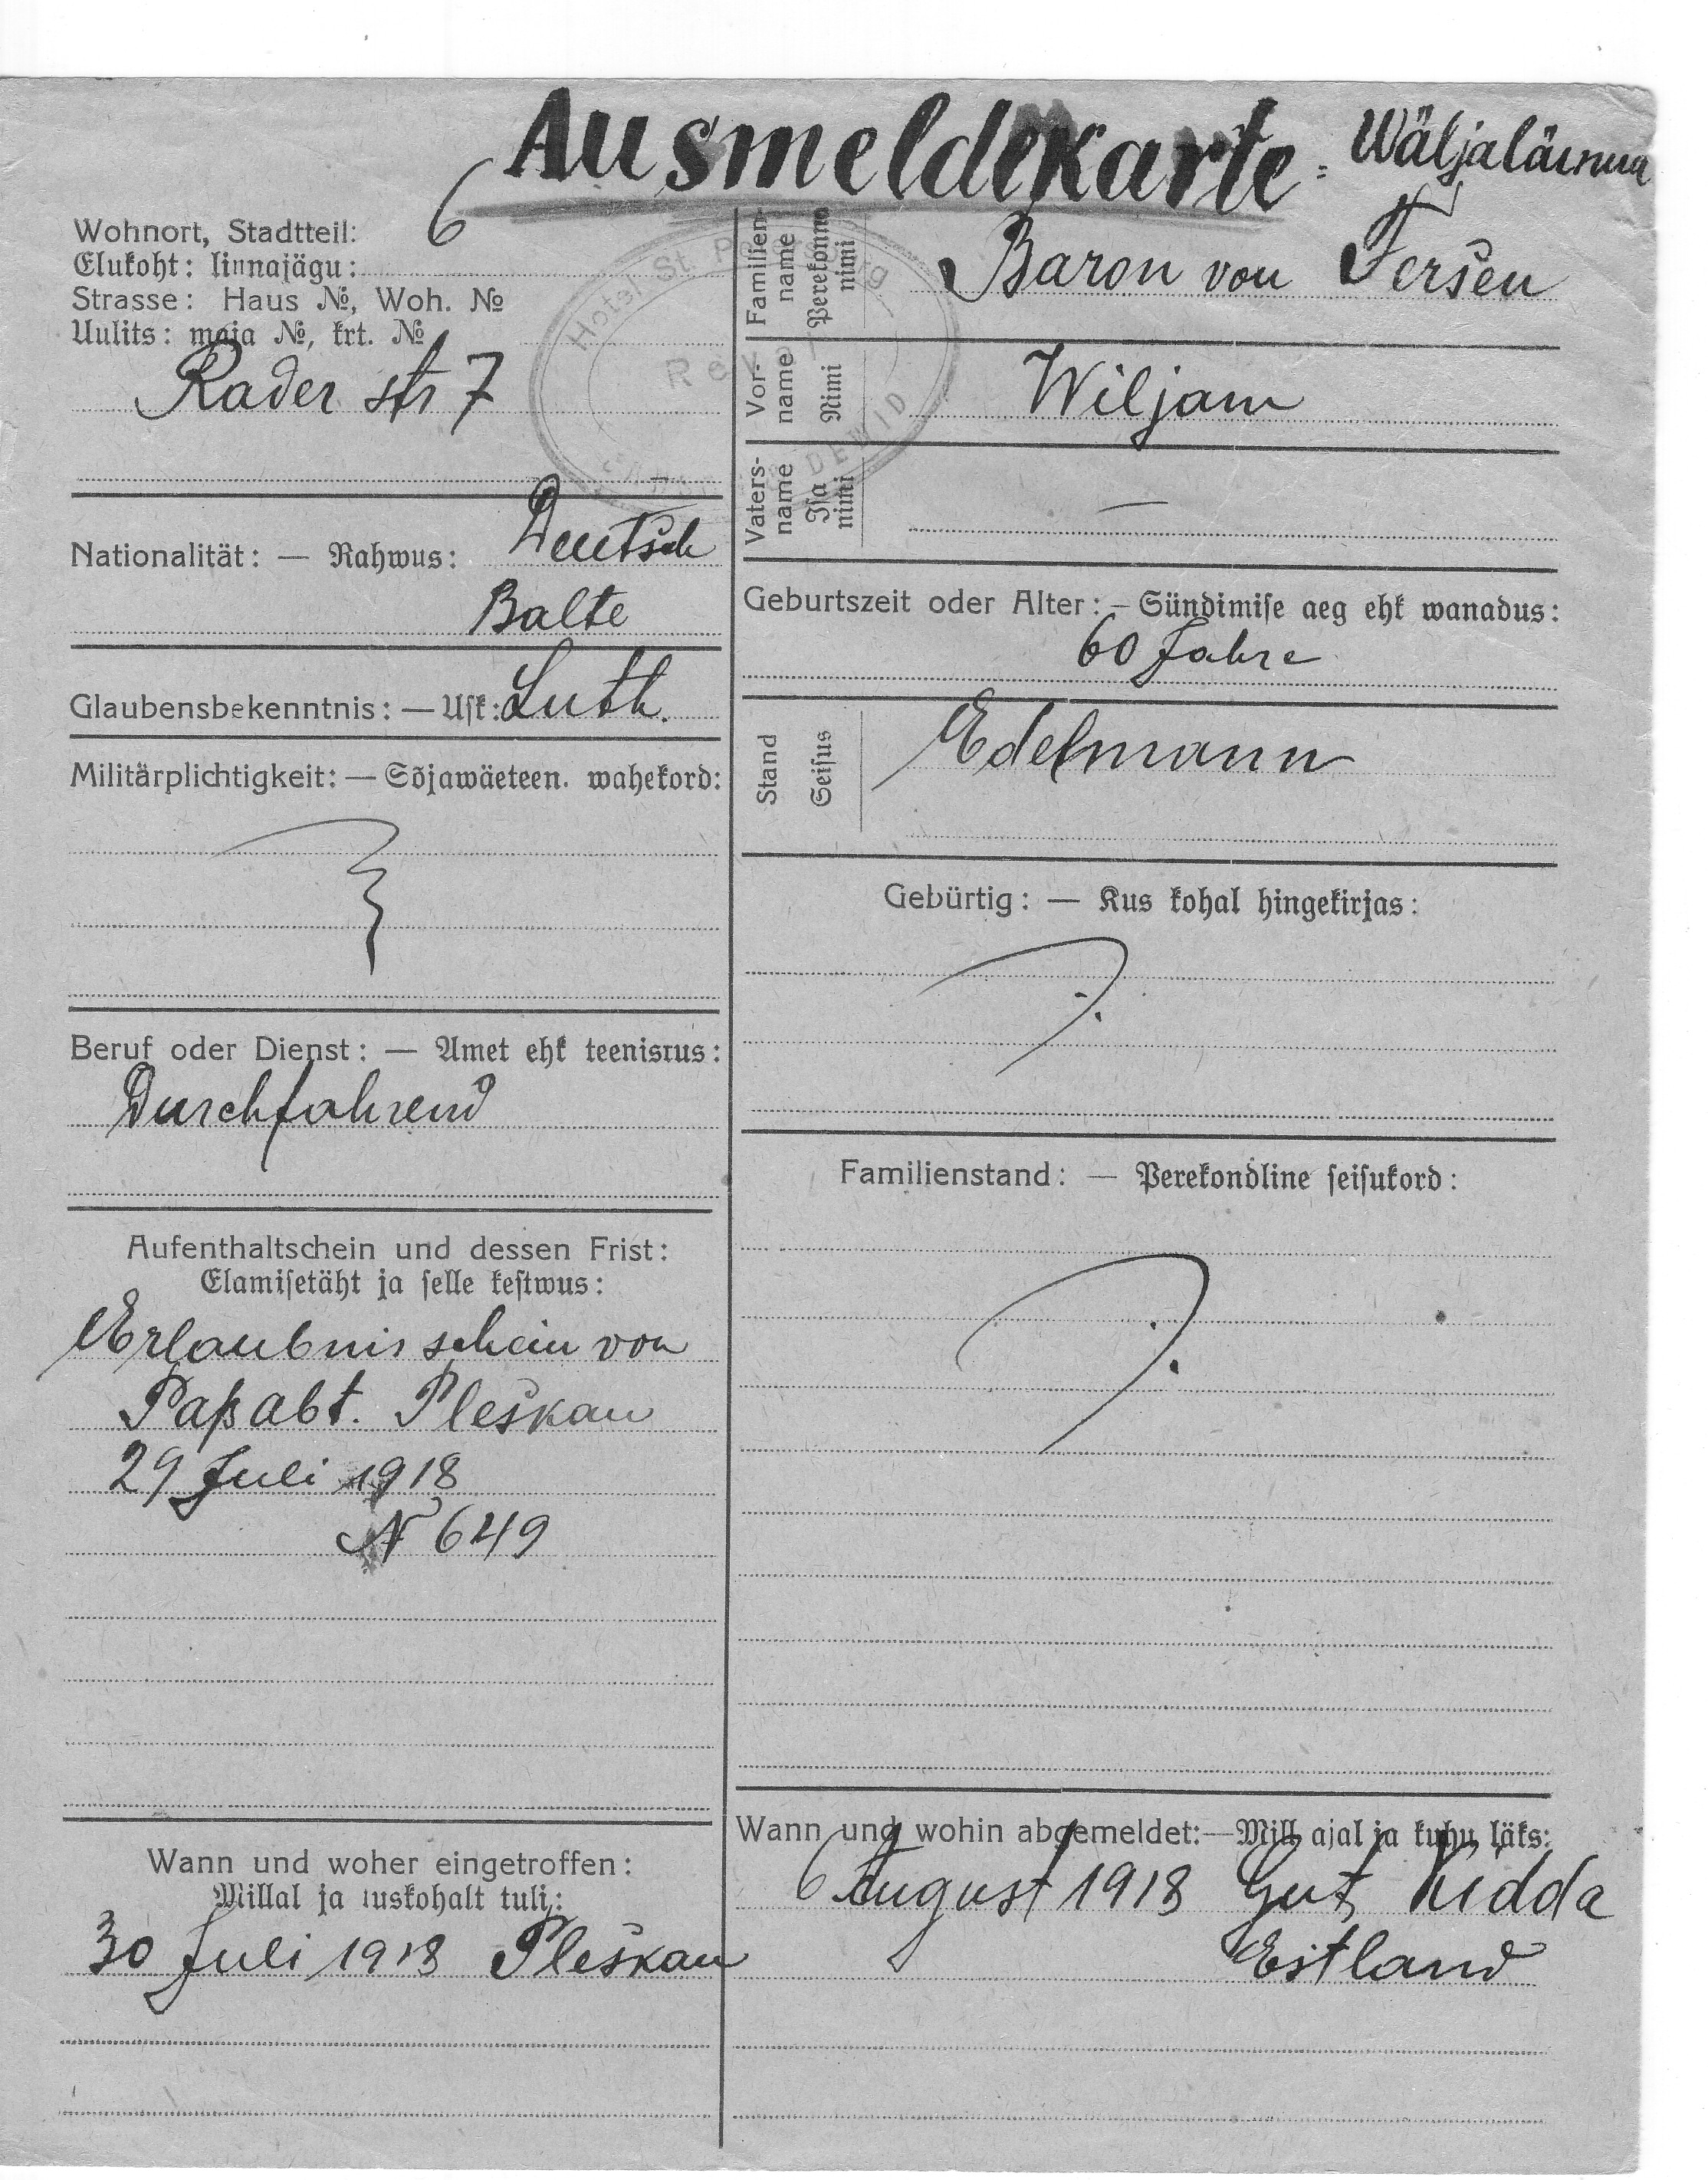 Ausmeldekarte = Wäljaläinua
6
Wohnort, Stadtteil:
Elukoht: linnajägu:
Strasse: Haus №, Woh. №
Uulits: maja №, krt. №
Rader str 7
Hotel St. Petersburg
Reval
Nationalität: — Rahwus: Deutsch
Balte
Glaubensbekenntnis: — Usk: Luth.
Militärplichtigkeit: — Sõjawäeteen. wahekord:
Beruf oder Dienst: — Amet ehk teenistus:
Durchfahrend
Aufenthaltschein und dessen Frist:
Elamisetäht ja selle kestwus:
Erlaubnis schein von
Paßabt. Pleskau
29 Juli 1918
N 649
Wann und woher eingetroffen:
Millal ja kuskohalt tuli:
30 Juli 1918 Pleskau
Familien-
name
Perekonna
nimi
Baron von Fersen
Vor-
name
Nimi
Wiljam
Vaters-
name
Isa
nimi
—
Geburtszeit oder Alter: — Sündimise aeg ehk wanadus:
60 Jahre
Stand
Seisus
Edelmann
Gebürtig: — Kus kohal hingekirjas:
Familienstand: — Perekondline seisukord:
Wann und wohin abgemeldet: — Mill ajal ja kuhu läks:
6 August 1918 Gut Kidda
Estland